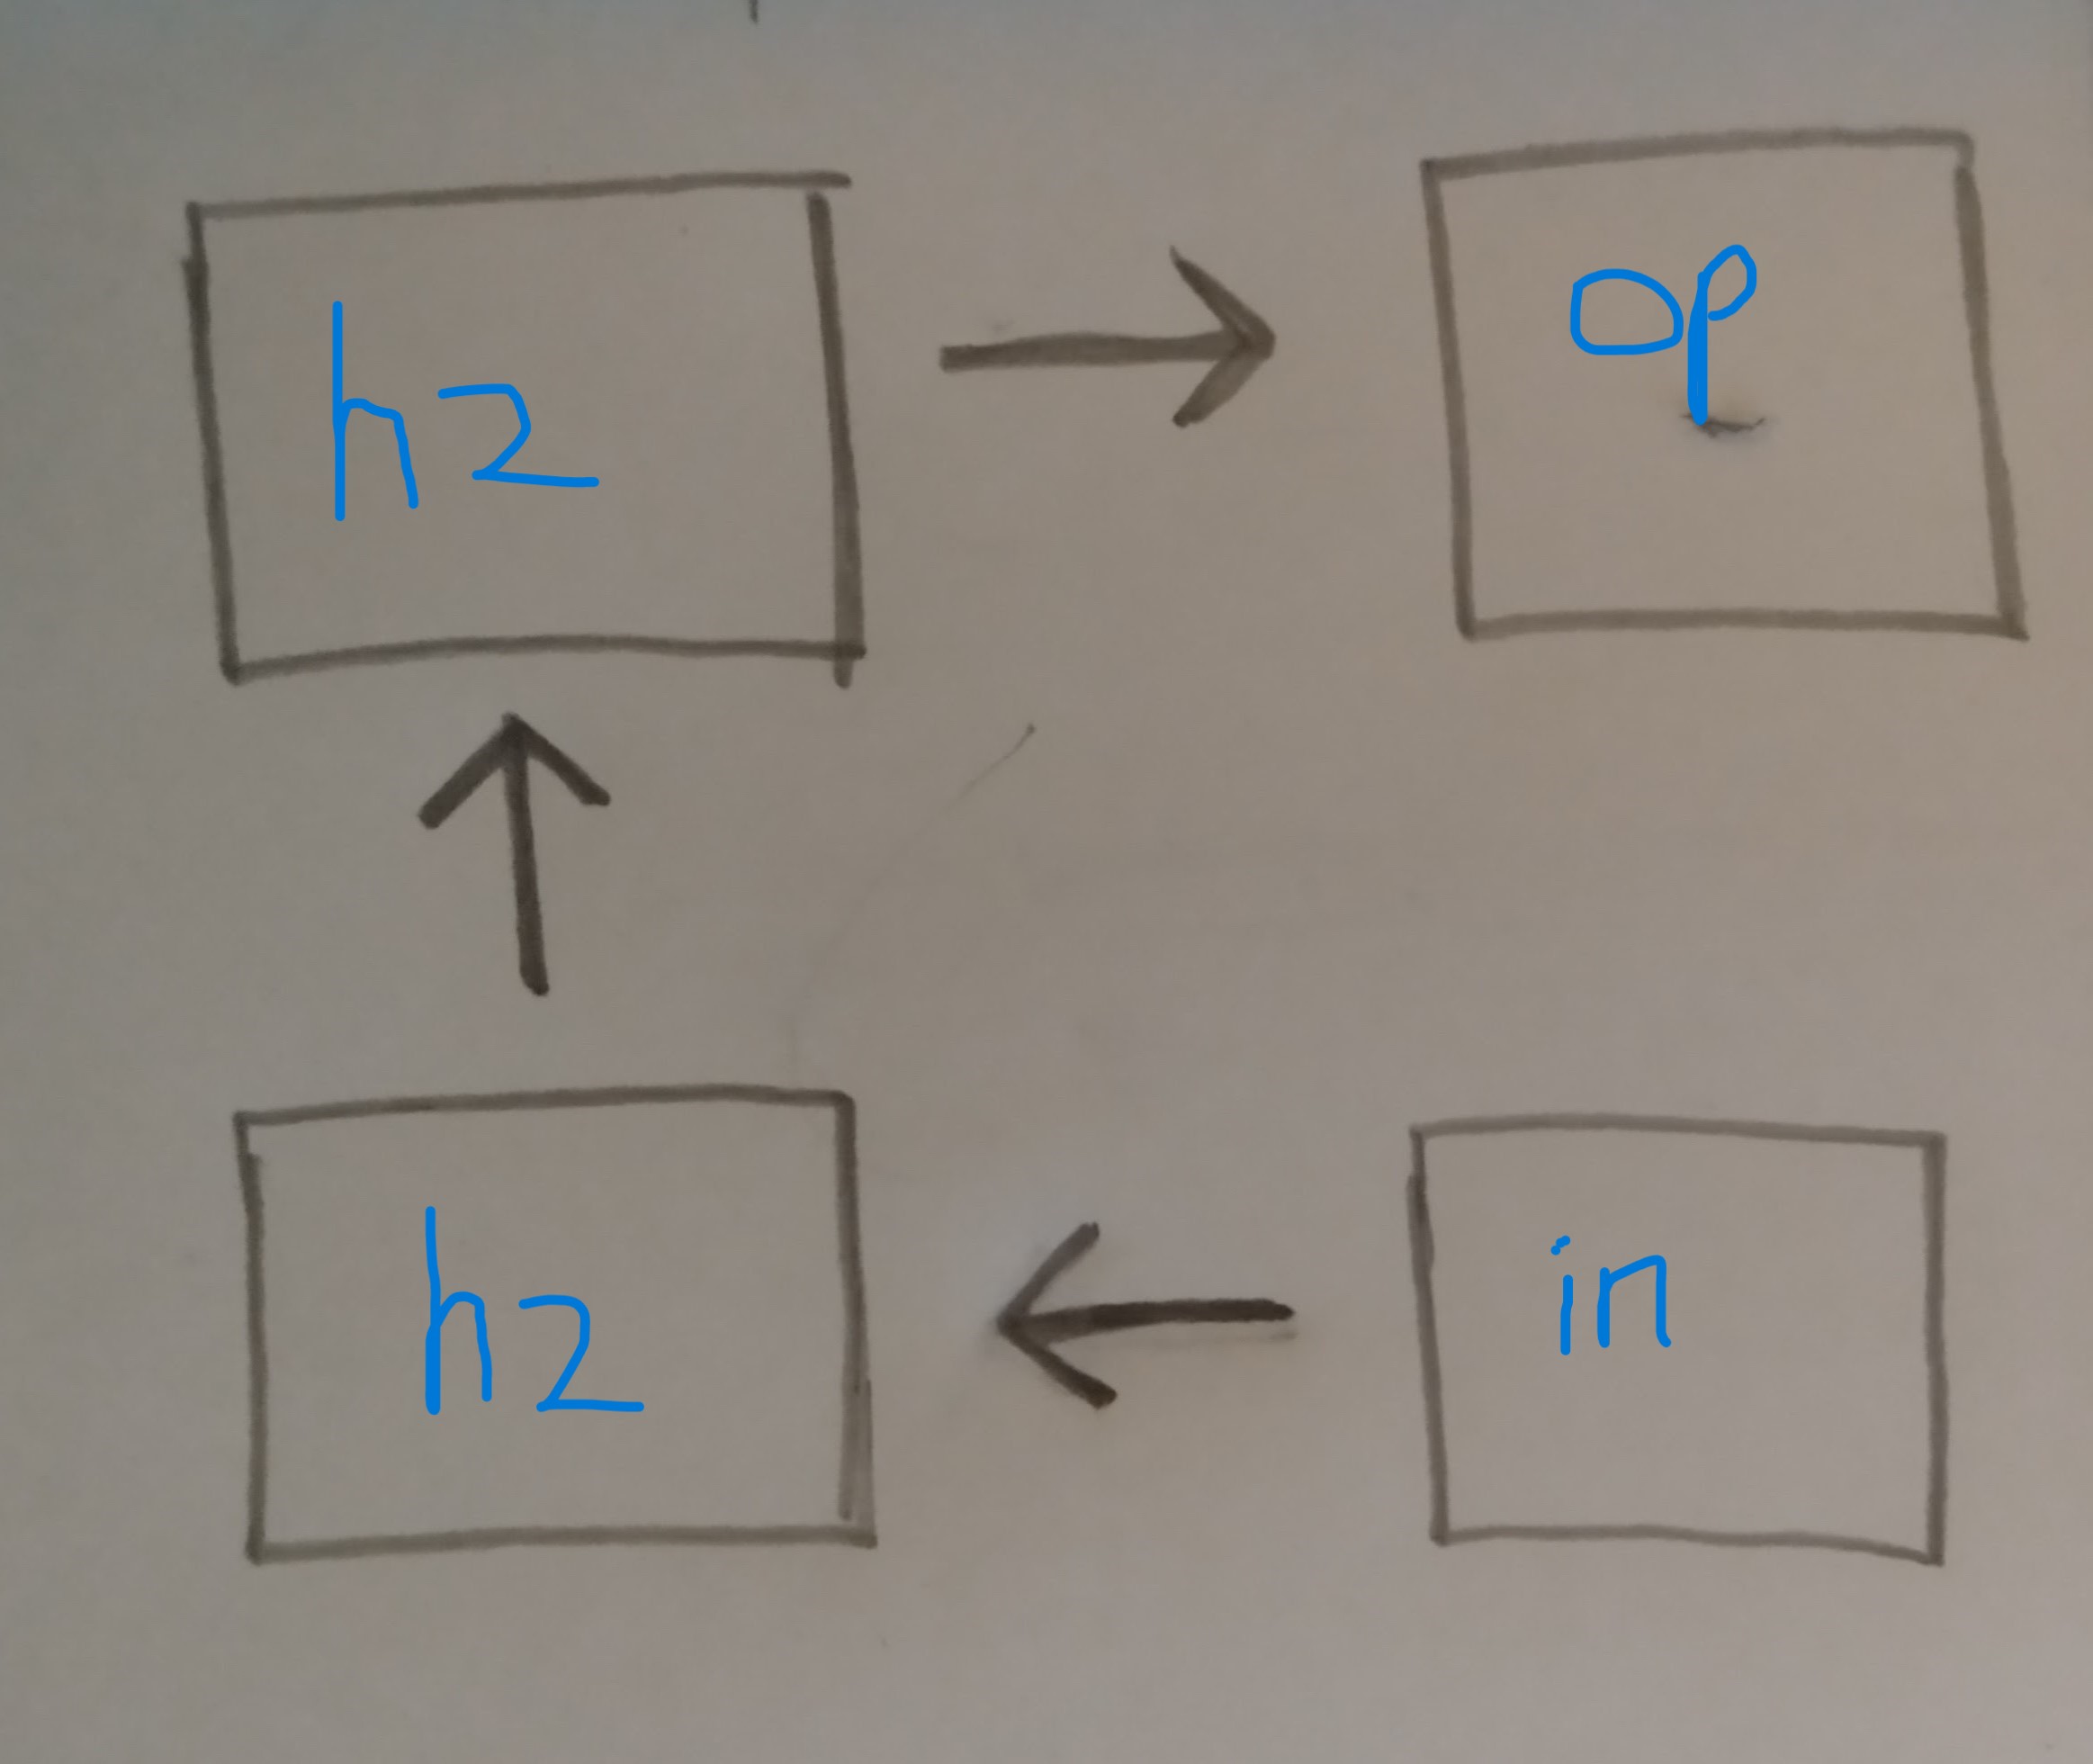 h2
op
h2
in